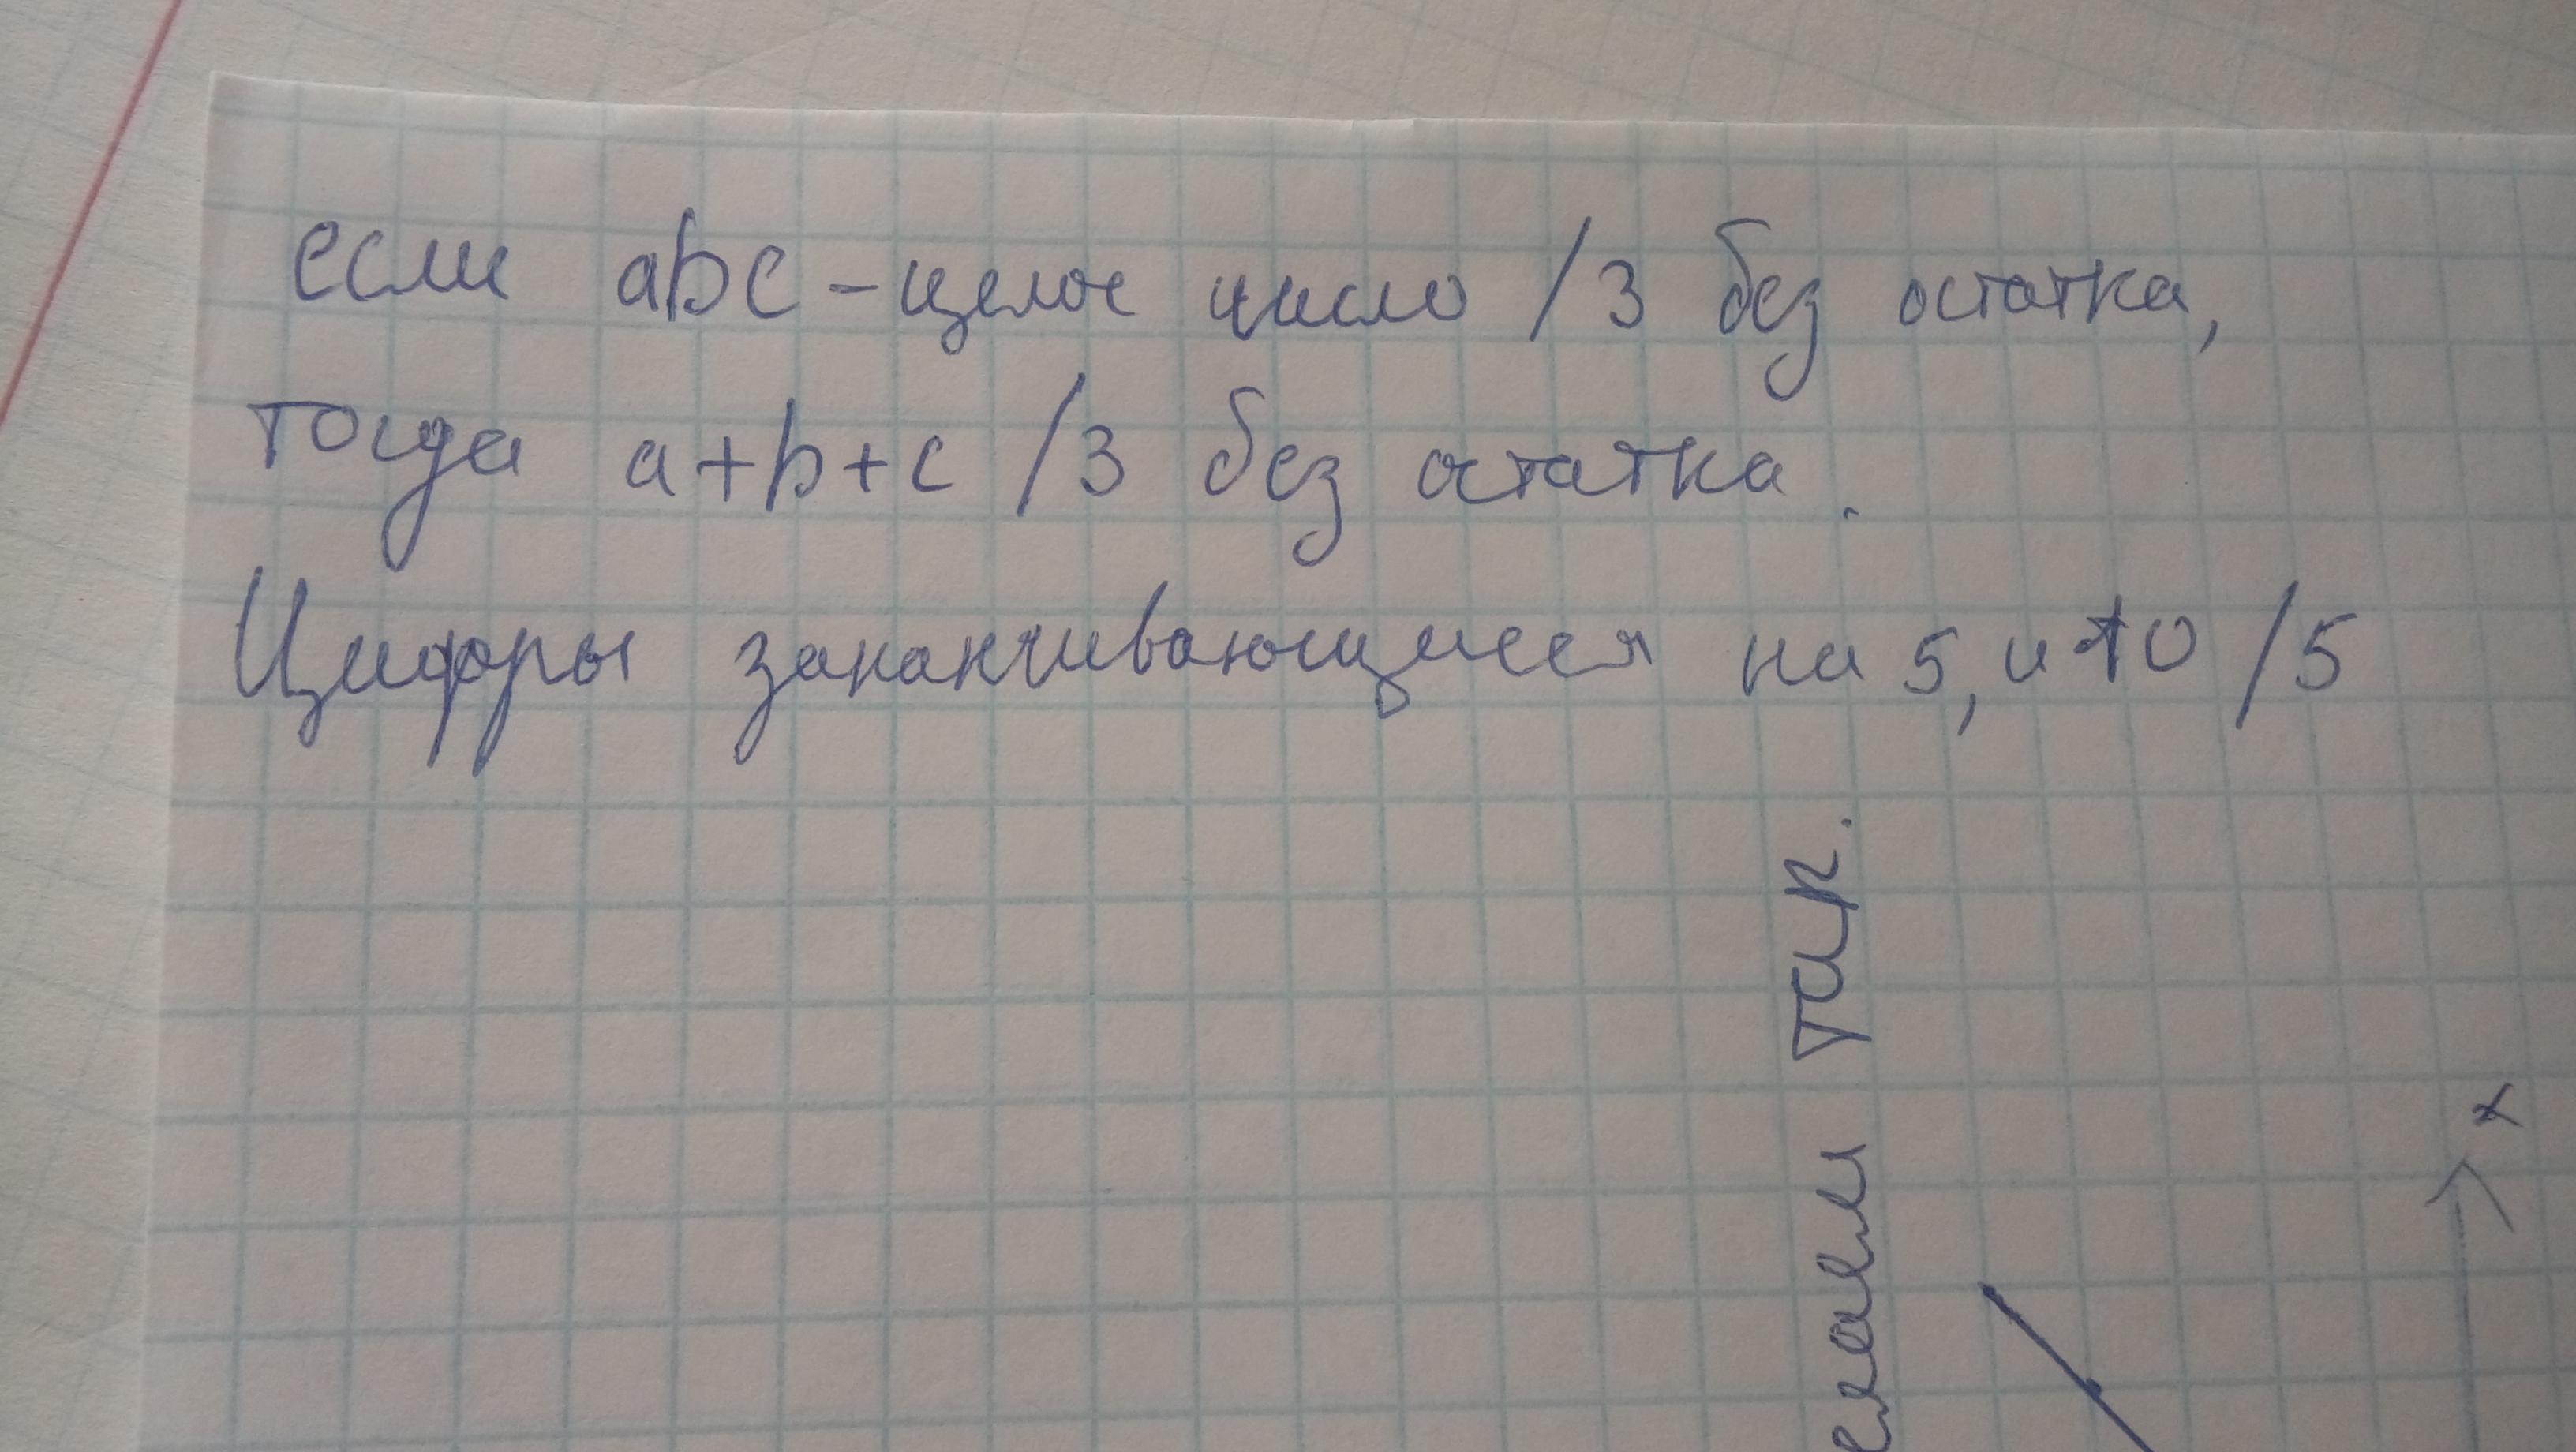 если abc - целое число /3 без остатка,
тогда a+b+c /3 без остатка.
Цифоры заканчивающиеся на 5, и 10 /5
так.
x